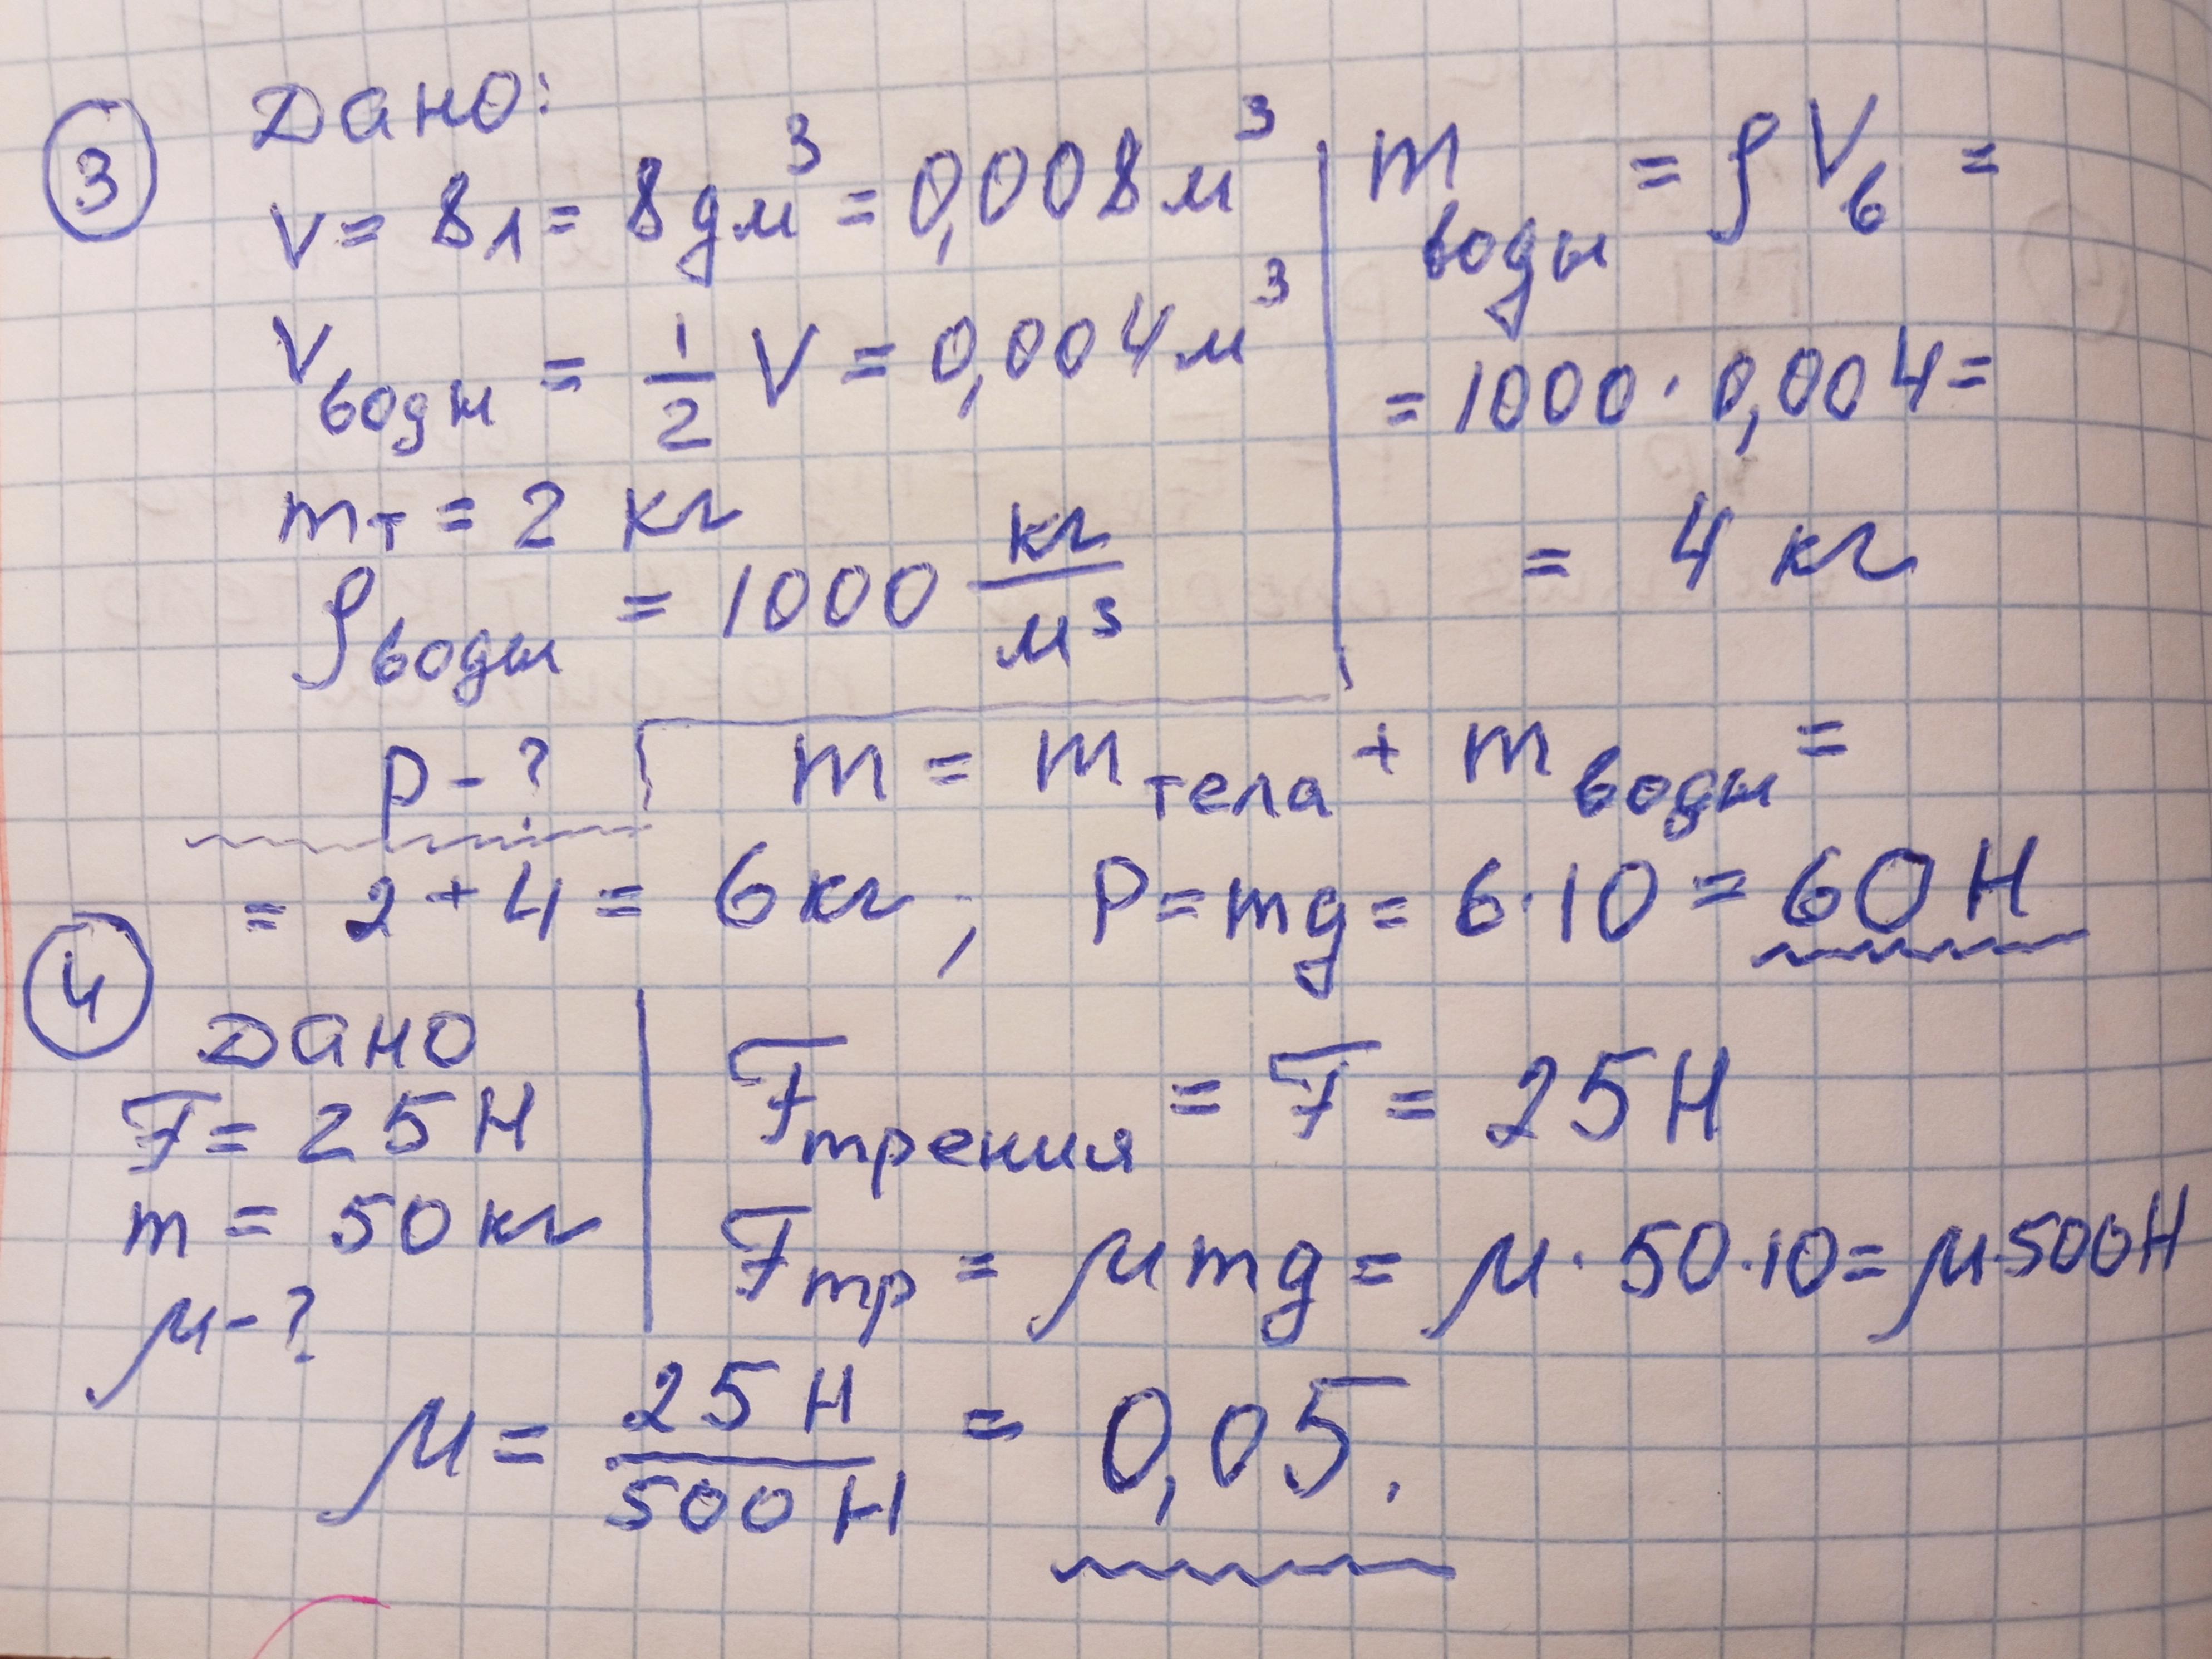 3
Дано:
V = 8л = 8дм³ = 0,008м³
Vводы = 1/2 V = 0,004м³
mт = 2 кг
ρводы = 1000 кг/м³
P-?
mводы = ρVв =
= 1000 · 0,004 =
= 4 кг
m = mтела + mводы =
= 2 + 4 = 6кг, P = mg = 6·10 = 60Н
4
Дано
F = 25Н
m = 50кг
μ-?
Fтрения = F = 25Н
Fтр = μmg = μ·50·10 = μ·500Н
μ = 25Н/500Н = 0,05.